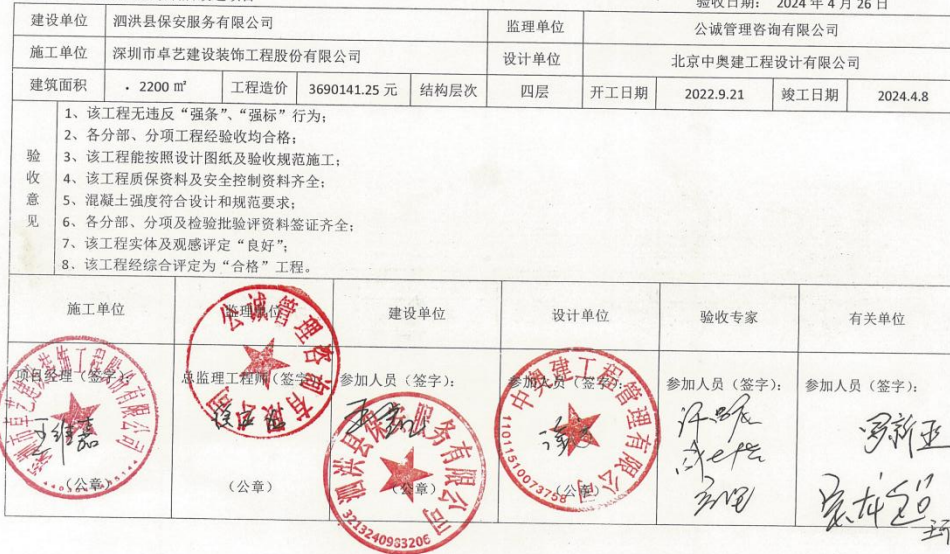 验收日期： 2024 年 4 月 26 日
建设单位 泗洪县保安服务有限公司 监理单位 公诚管理咨询有限公司
施工单位 深圳市卓艺建设装饰工程股份有限公司 设计单位 北京中奥建工程设计有限公司
建筑面积 2200 ㎡ 工程造价 3690141.25 元 结构层次 四层 开工日期 2022.9.21 竣工日期 2024.4.8
验收意见
1、该工程无违反“强条”、“强标”行为；
2、各分部、分项工程经验收均合格；
3、该工程能按照设计图纸及验收规范施工；
4、该工程质保资料及安全控制资料齐全；
5、混凝土强度符合设计和规范要求；
6、各分部、分项及检验批验评资料签证齐全；
7、该工程实体及观感评定“良好”；
8、该工程经综合评定为“合格”工程。
施工单位 监理单位 建设单位 设计单位 验收专家 有关单位
项目经理（签字） 总监理工程师（签字 参加人员（签字）： 参加人员（签字）： 参加人员（签字）： 参加人员（签字）：
（公章） （公章） （公章） （公章）
深圳市卓艺建设装饰工程股份有限公司
公诚管理咨询有限公司
泗洪县保安服务有限公司
3213240983206
中奥建工程管理有限公司
1101151007375